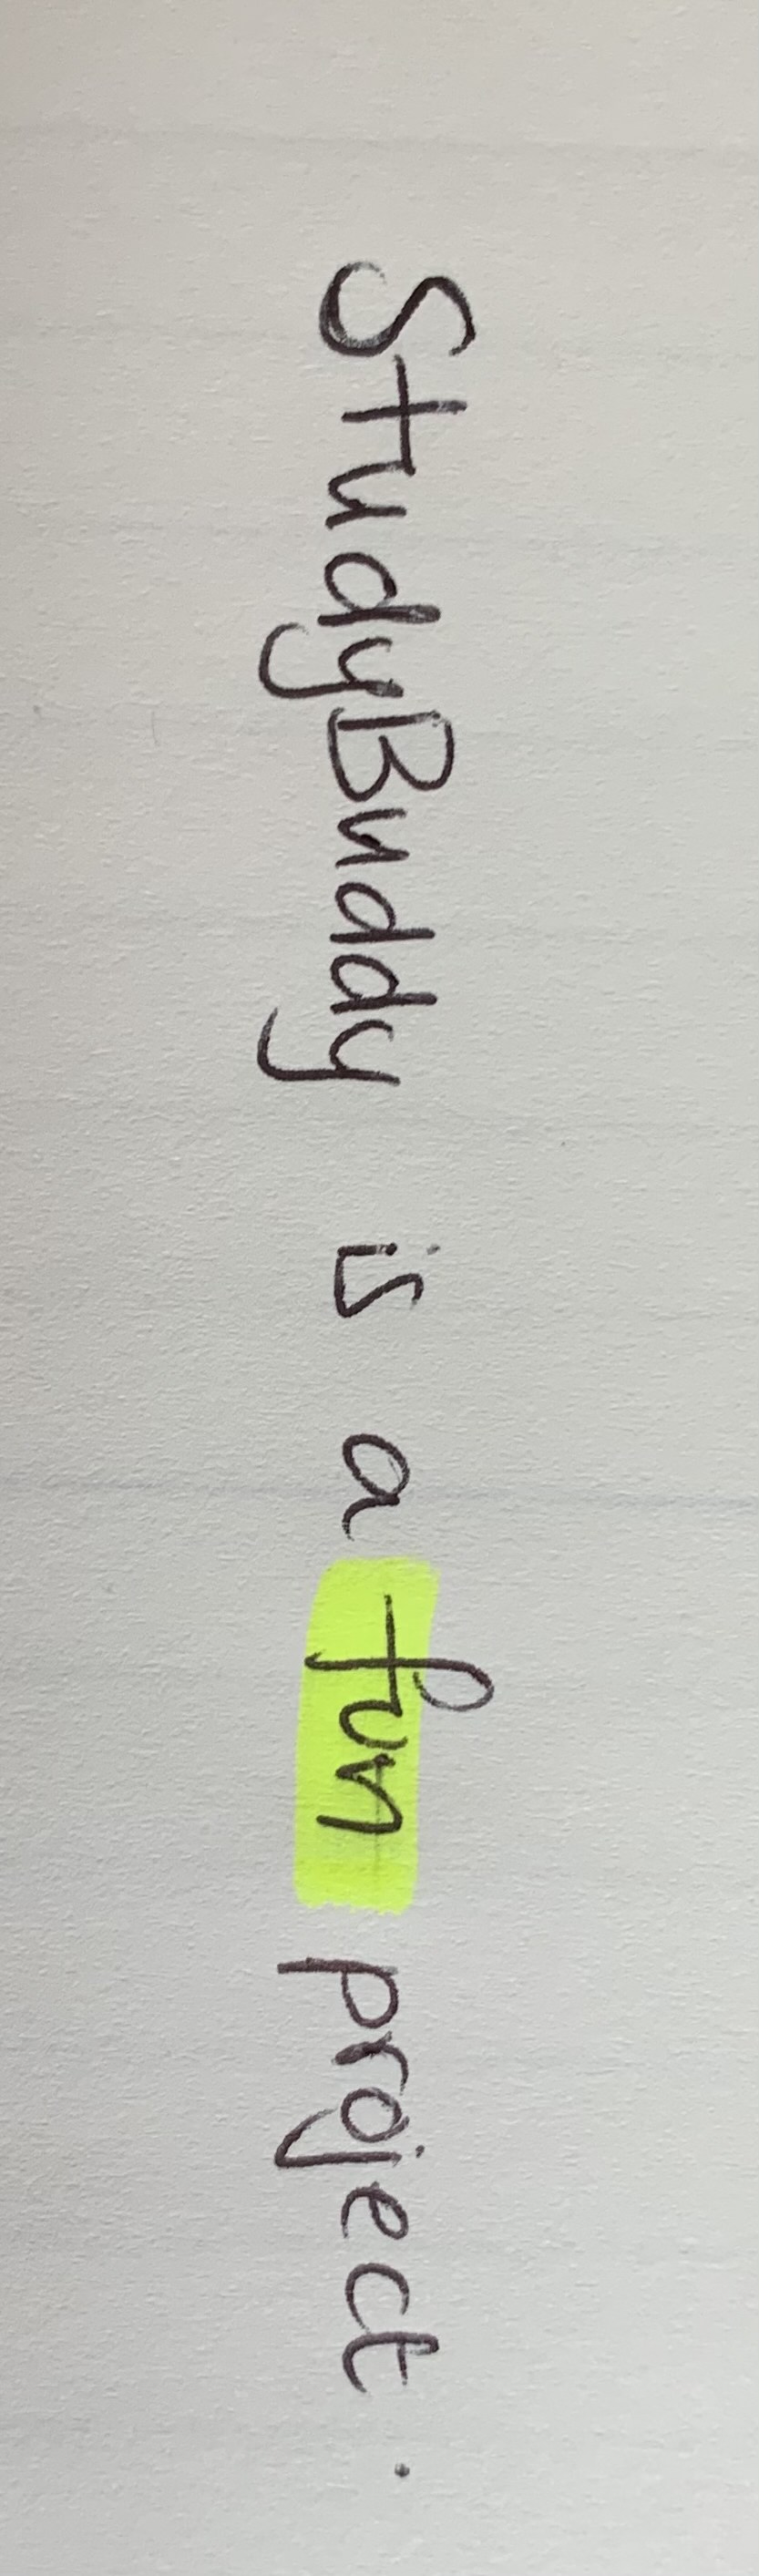 StudyBuddy is a fun project.